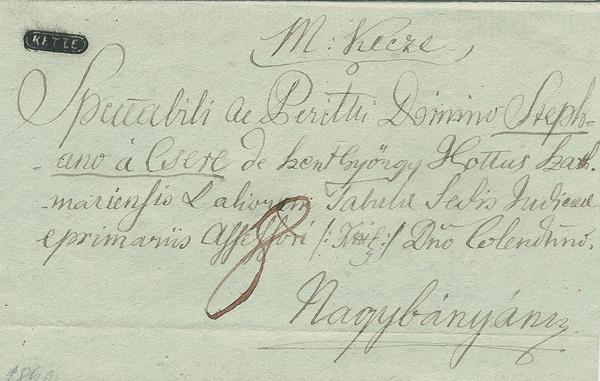 KETZE
M: Kecze
Spectabili ac Perittui Domino Steph-
ano à Csere de Szent György Ilottus Szath-
mariensis Laliorum Tabulae Sedis Judicuae
eprimariis Assessori /: :/ Dño Colendũno.
8
Nagybányán